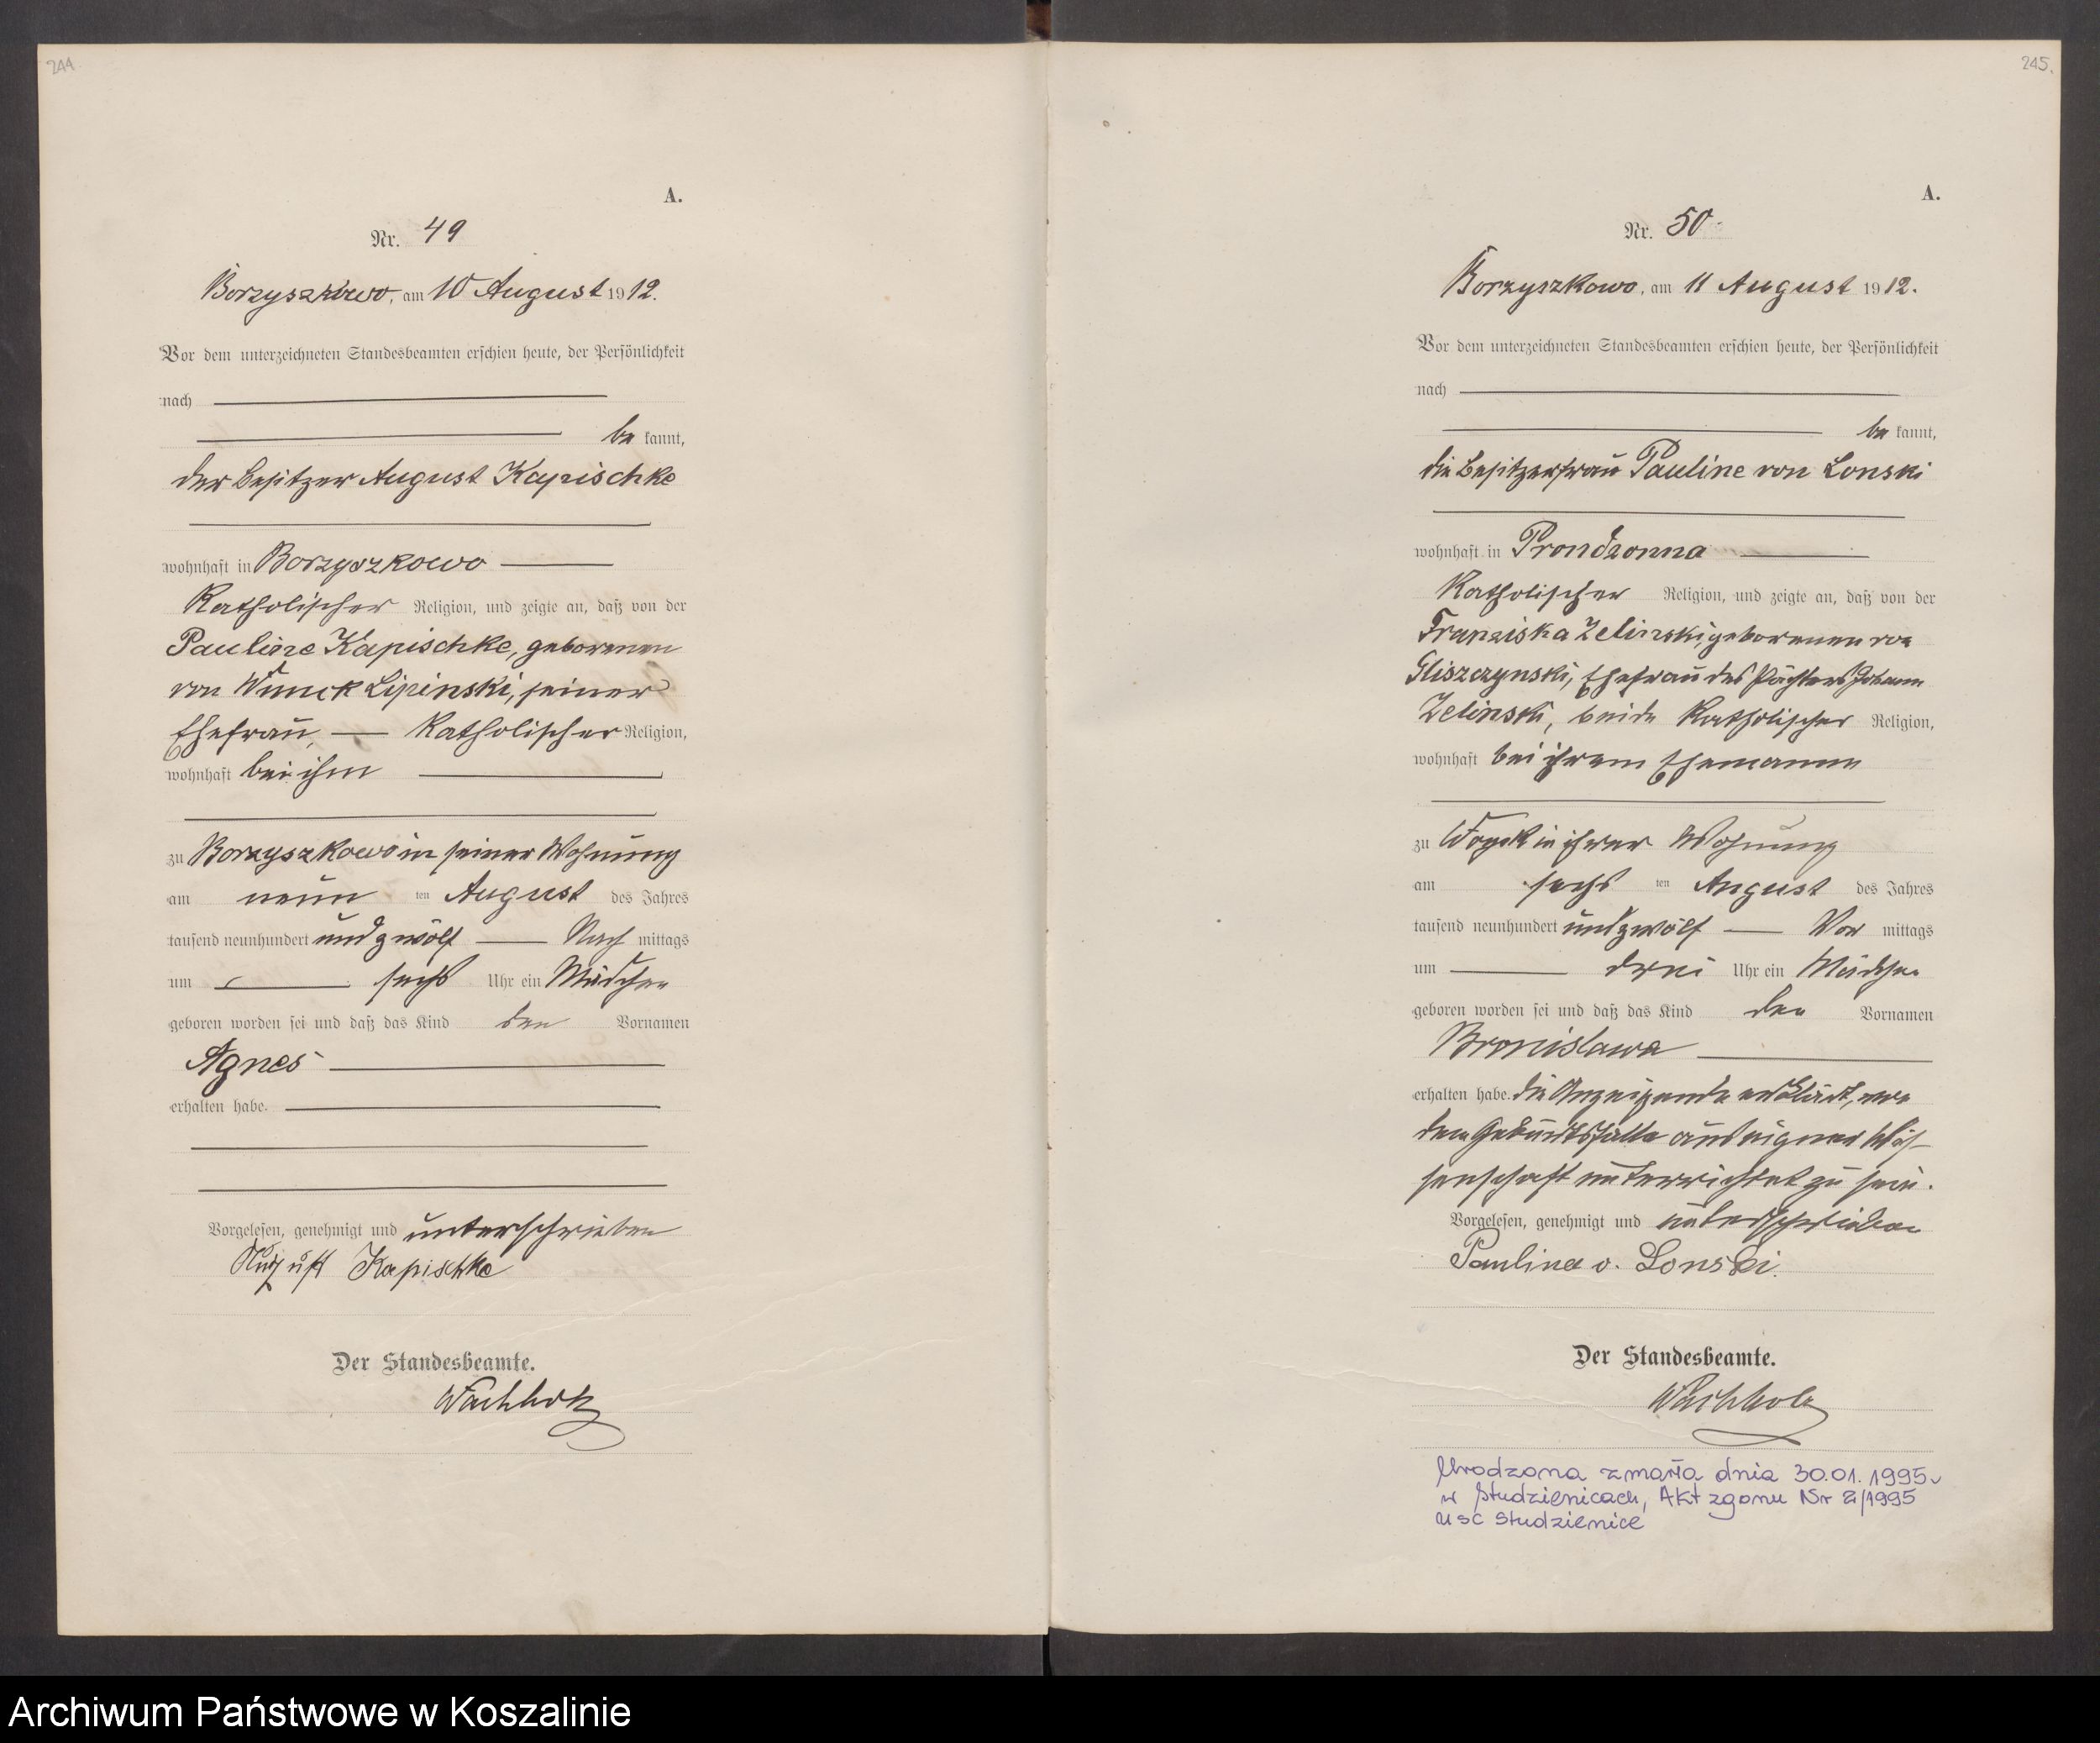 244
A.
Nr. 49
Borzyszkowo, am 10 August 1912.
Vor dem unterzeichneten Standesbeamten erschien heute, der Persönlichkeit
nach
be kannt,
der Besitzer August Kapischke
wohnhaft in Borzyszkowo
Katholischer Religion, und zeigte an, daß von der
Pauline Kapischke, geborenen
von Wnuck Lipinski, seiner
Ehefrau, Katholischer Religion,
wohnhaft bei ihm
zu Borzyszkowo in seiner Wohnung
am neun ten August des Jahres
tausend neunhundert und zwölf Nach mittags
um sechs Uhr ein Mädchen
geboren worden sei und daß das Kind den Vornamen
Agnes
erhalten habe.
Vorgelesen, genehmigt und unterschrieben
August Kapischke
Der Standesbeamte.
Wachholz
245.
A.
Nr. 50
Borzyszkowo, am 11 August 1912.
Vor dem unterzeichneten Standesbeamten erschien heute, der Persönlichkeit
nach
be kannt,
die Besitzerfrau Pauline von Lonski
wohnhaft in Prondzonna
Katholischer Religion, und zeigte an, daß von der
Franziska Zelinski, geborenen von
Gliszczynski, Ehefrau des Pächters Johann
Zelinski, beide Katholischer Religion,
wohnhaft bei ihrem Ehemanne
zu in ihrer Wohnung
am sechs ten August des Jahres
tausend neunhundert und zwölf Vor mittags
um drei Uhr ein Mädchen
geboren worden sei und daß das Kind den Vornamen
Bronislawa
erhalten habe. Die Anzeigende erklärt, von
dem Geburtsfalle aus eigner Wis-
senschaft unterrichtet zu sein.
Vorgelesen, genehmigt und unterschrieben
Paulina v. Lonski.
Der Standesbeamte.
Wachholz
Urodzona zmarła dnia 30.01.1995r
w Studzienicach, Akt zgonu Nr 2/1995
USC Studzienice
Archiwum Państwowe w Koszalinie